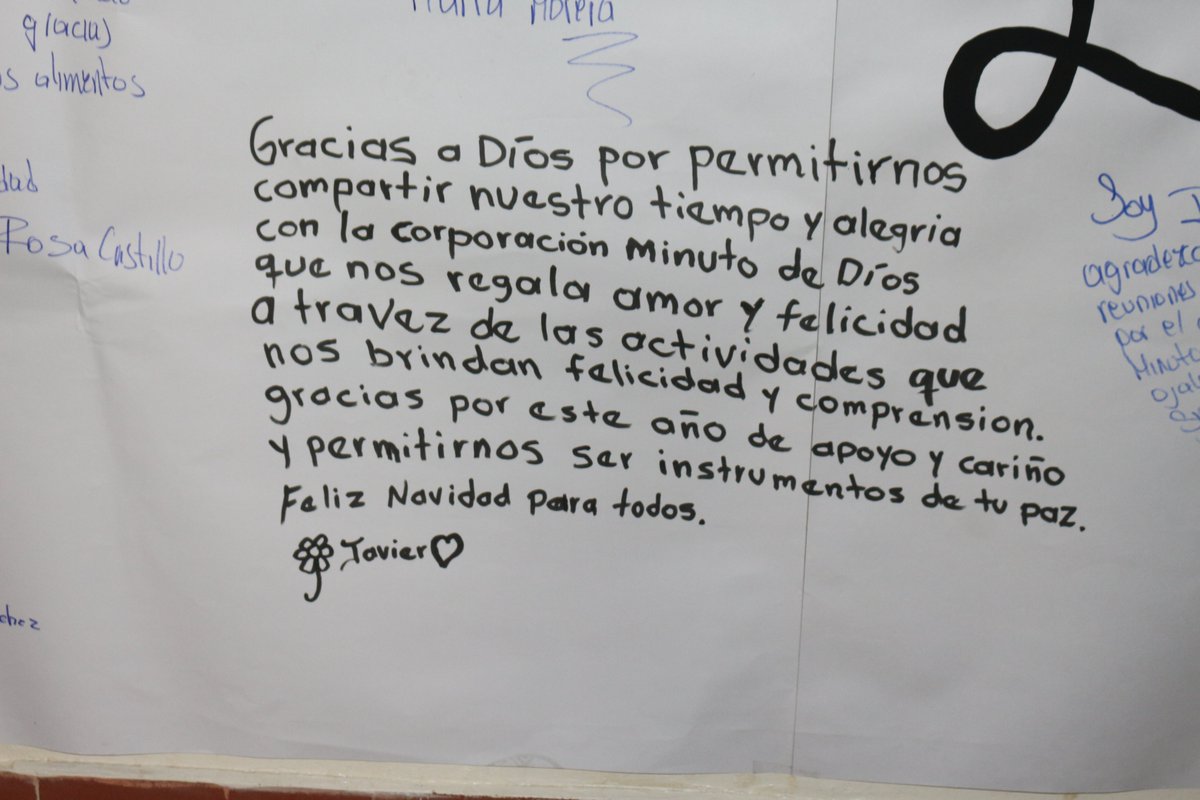 glacia)
os alimentos
dad
Rosa Castillo
chez
Gracias a Díos por permitirnos
compartir nuestro tiempo y alegria
con la corporación Minuto de Díos
que nos regala amor y felicidad
a travez de las actividades que
nos brindan felicidad y comprension.
gracias por este año de apoyo y cariño
y permitirnos ser instrumentos de tu paz.
Feliz Navidad para todos.
Javier
Soy
agradezco
reuniones
por el
Minuto
ojal